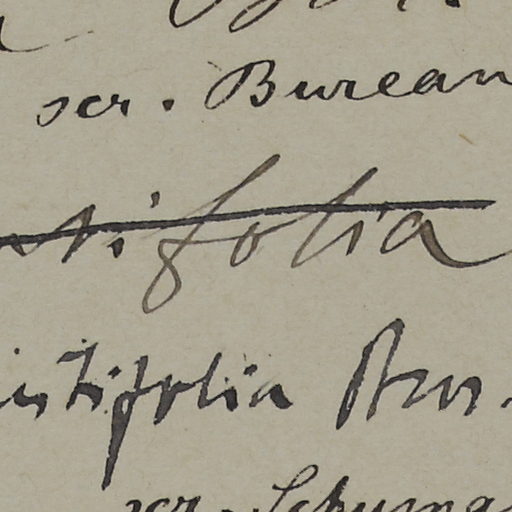 scr. Bureau
stifolia
istifolia Bur.
scr. Schuma